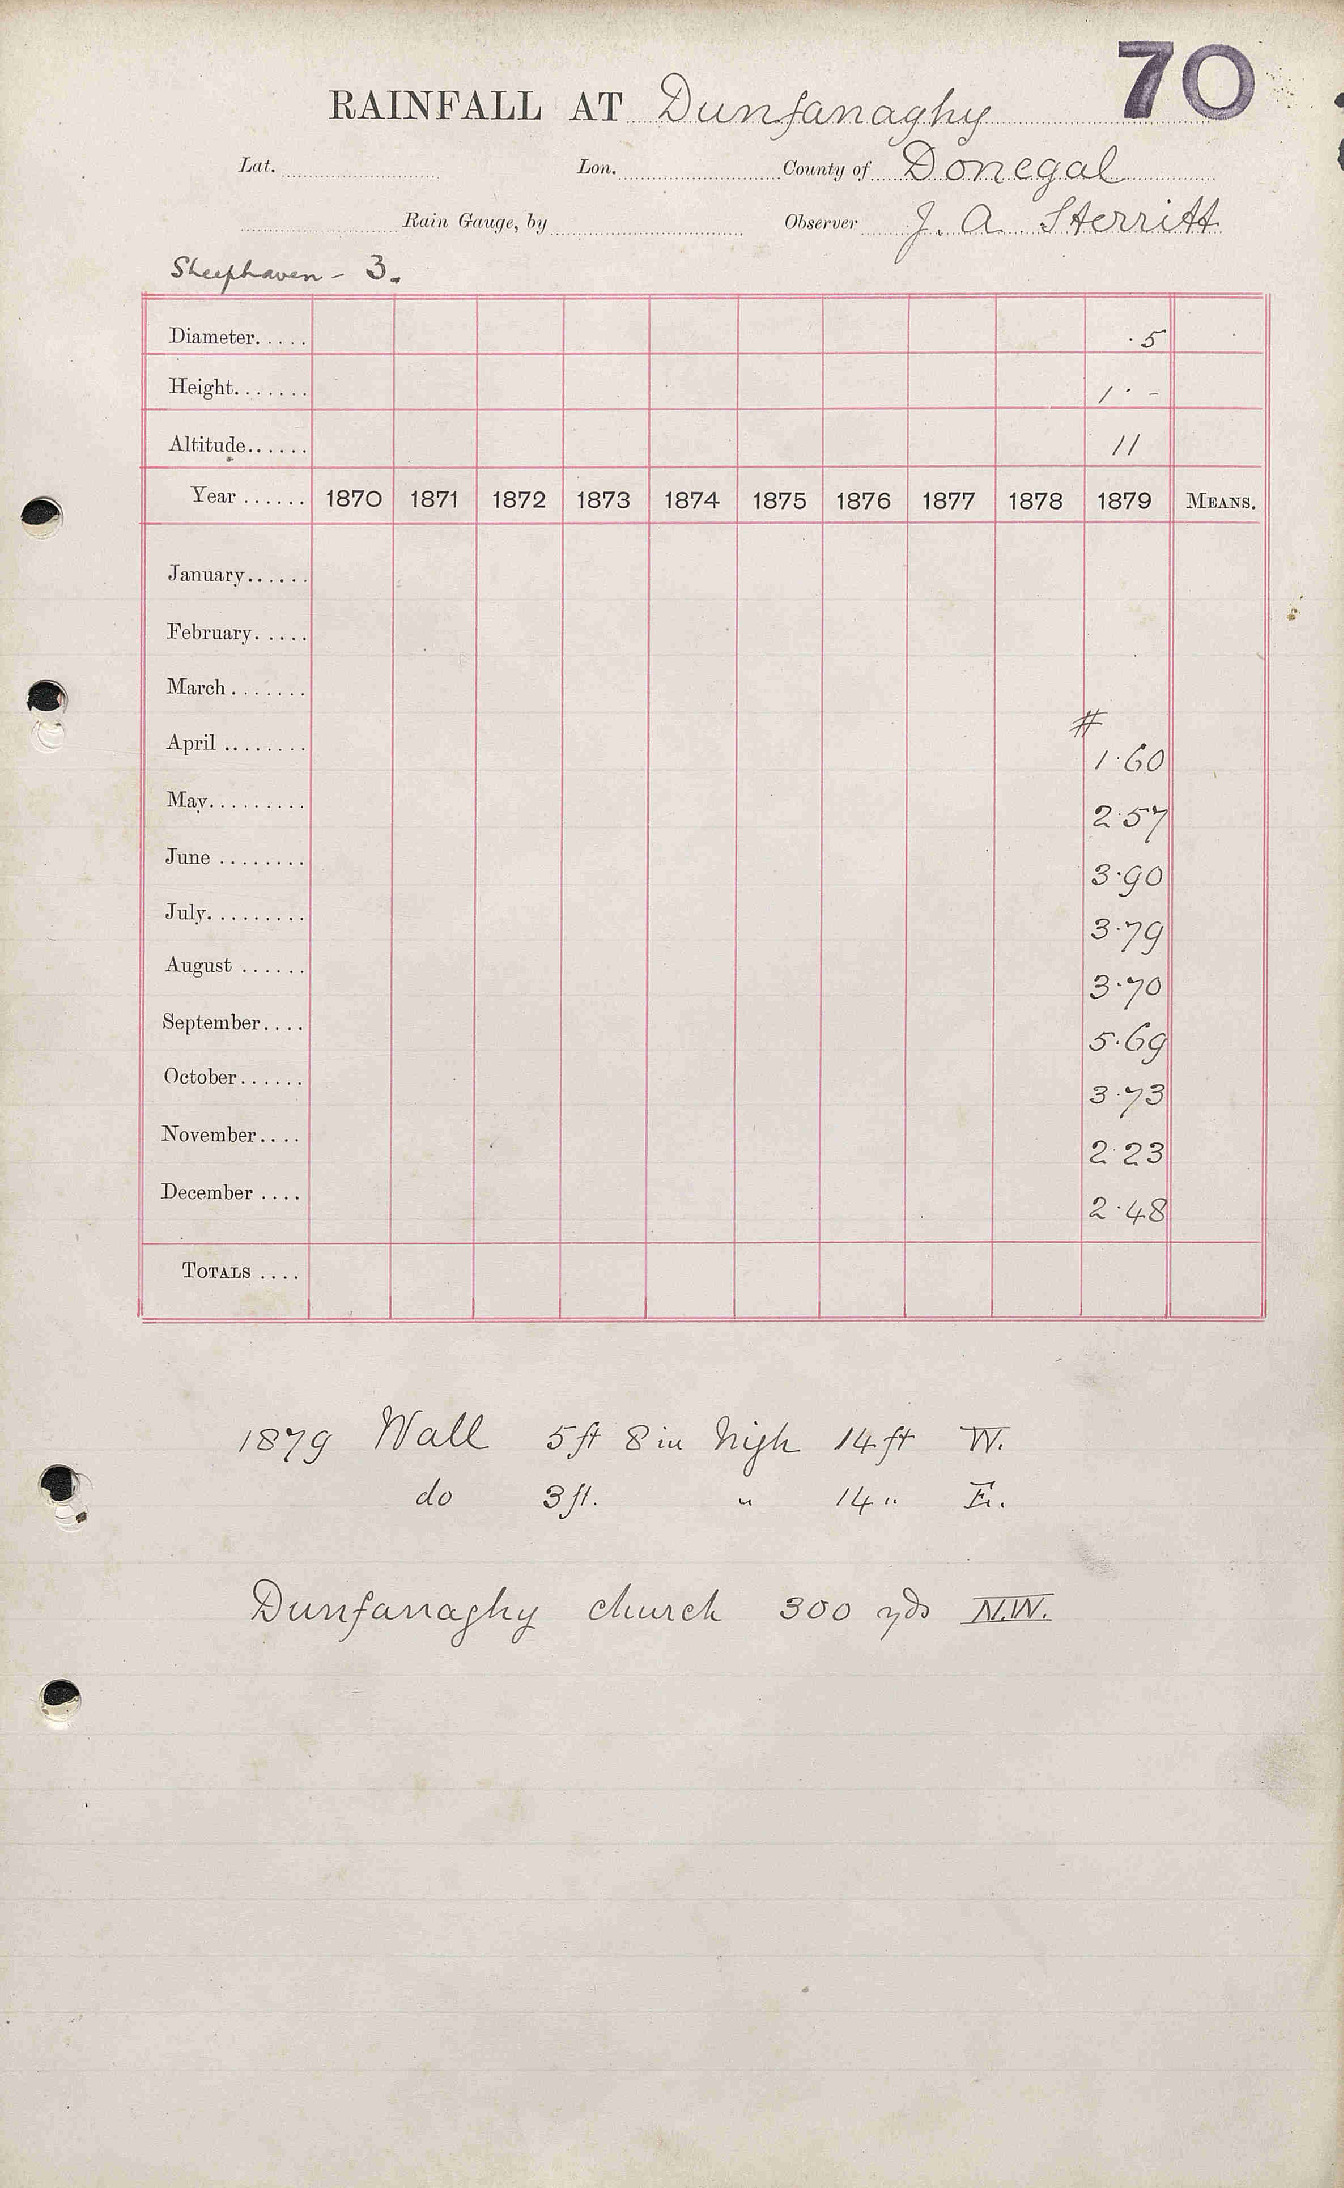 70
RAINFALL AT Dunfanaghy
Lat. Lon. County of Donegal
Rain Gauge, by Observer J. A. Sterritt
Sheephaven - 3.
Diameter..... ·5
Height....... 1·-
Altitude...... 11
Year ...... 1870 1871 1872 1873 1874 1875 1876 1877 1878 1879 MEANS.
January......
February.....
March .......
#
April ........ 1·60
May......... 2·57
June ........ 3·90
July......... 3·79
August ...... 3·70
September.... 5·69
October...... 3·73
November.... 2·23
December .... 2·48
TOTALS ....
1879 Wall 5ft 8in high 14ft W.
do 3ft. " 14 " E.
Dunfanaghy church 300 yds N.W.